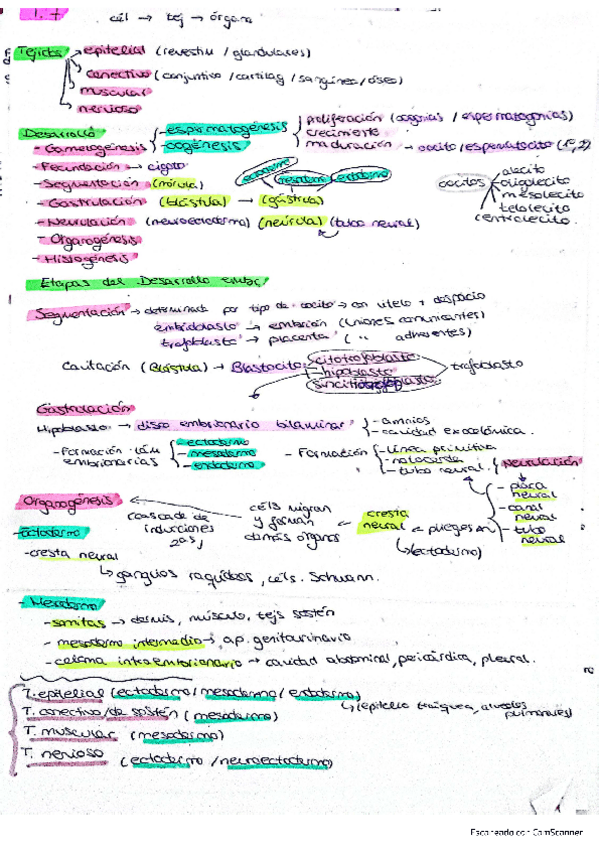 T.7
cél → tej → órgano
Tejidos → epitelial (revestim / glandulares)
conectivo (conjuntivo / cartilag / sanguíneo / óseo)
muscular
nervioso
Desarrollo
- Gametogénesis - espermatogénesis
- oogénesis
proliferación (oogonias / espermatogonias)
crecimiento
maduración → oocito / espermatocito (1º, 2º)
- Fecundación → cigoto
- Segmentación (mórula)
ectodermo mesodermo endodermo
- Gastrulación (blástula) → (gástrula)
- Neurulación (neuroectodermo) (neúrula) (tubo neural)
- Organogénesis
- Histogénesis
oocitos
alecito
oligolecito
mesolecito
telolecito
centrolecito
Etapas del Desarrollo embr.
Segmentación → determinada por tipo de oocito → con vitelo + despacio
embrioblasto → embrión (Uniones comunicantes)
trofoblasto → placenta ( " adherentes)
Cavitación (Blástula) → Blastocito
citotrofoblasto
hipoblasto
sincitiotrofoblasto
trofoblasto
Gastrulación
Hipoblasto → disco embrionario bilaminar
- amnios
- cavidad exocelómica.
- Formación lám embrionarias
- ectodermo
- mesodermo
- endodermo
- Formación
- línea primitiva
- notocorda
- tubo neural
Neurulación
- placa neural
- canal neural
- tubo neural
Organogénesis
cascada de inducciones 2as,
céls migran y forman demás órganos
← cresta neural ← plieges
(ectodermo)
- Ectodermo
- cresta neural
↳ ganglios raquídeos, céls. Schwann.
- Mesodermo
- somitas → dermis, músculo, tejs sostén
- mesodermo intermedio → ap. genitourinario
- celoma intraembrionario → cavidad abdominal, pericárdica, pleural.
T. epitelial (ectodermo / mesodermo / endodermo)
↳ (epitelio tráquea, alveolos pulmonares)
T. conectivo / de sostén (mesodermo)
T. muscular (mesodermo)
T. nervioso (ectodermo / neuroectodermo)
Escaneado con CamScanner